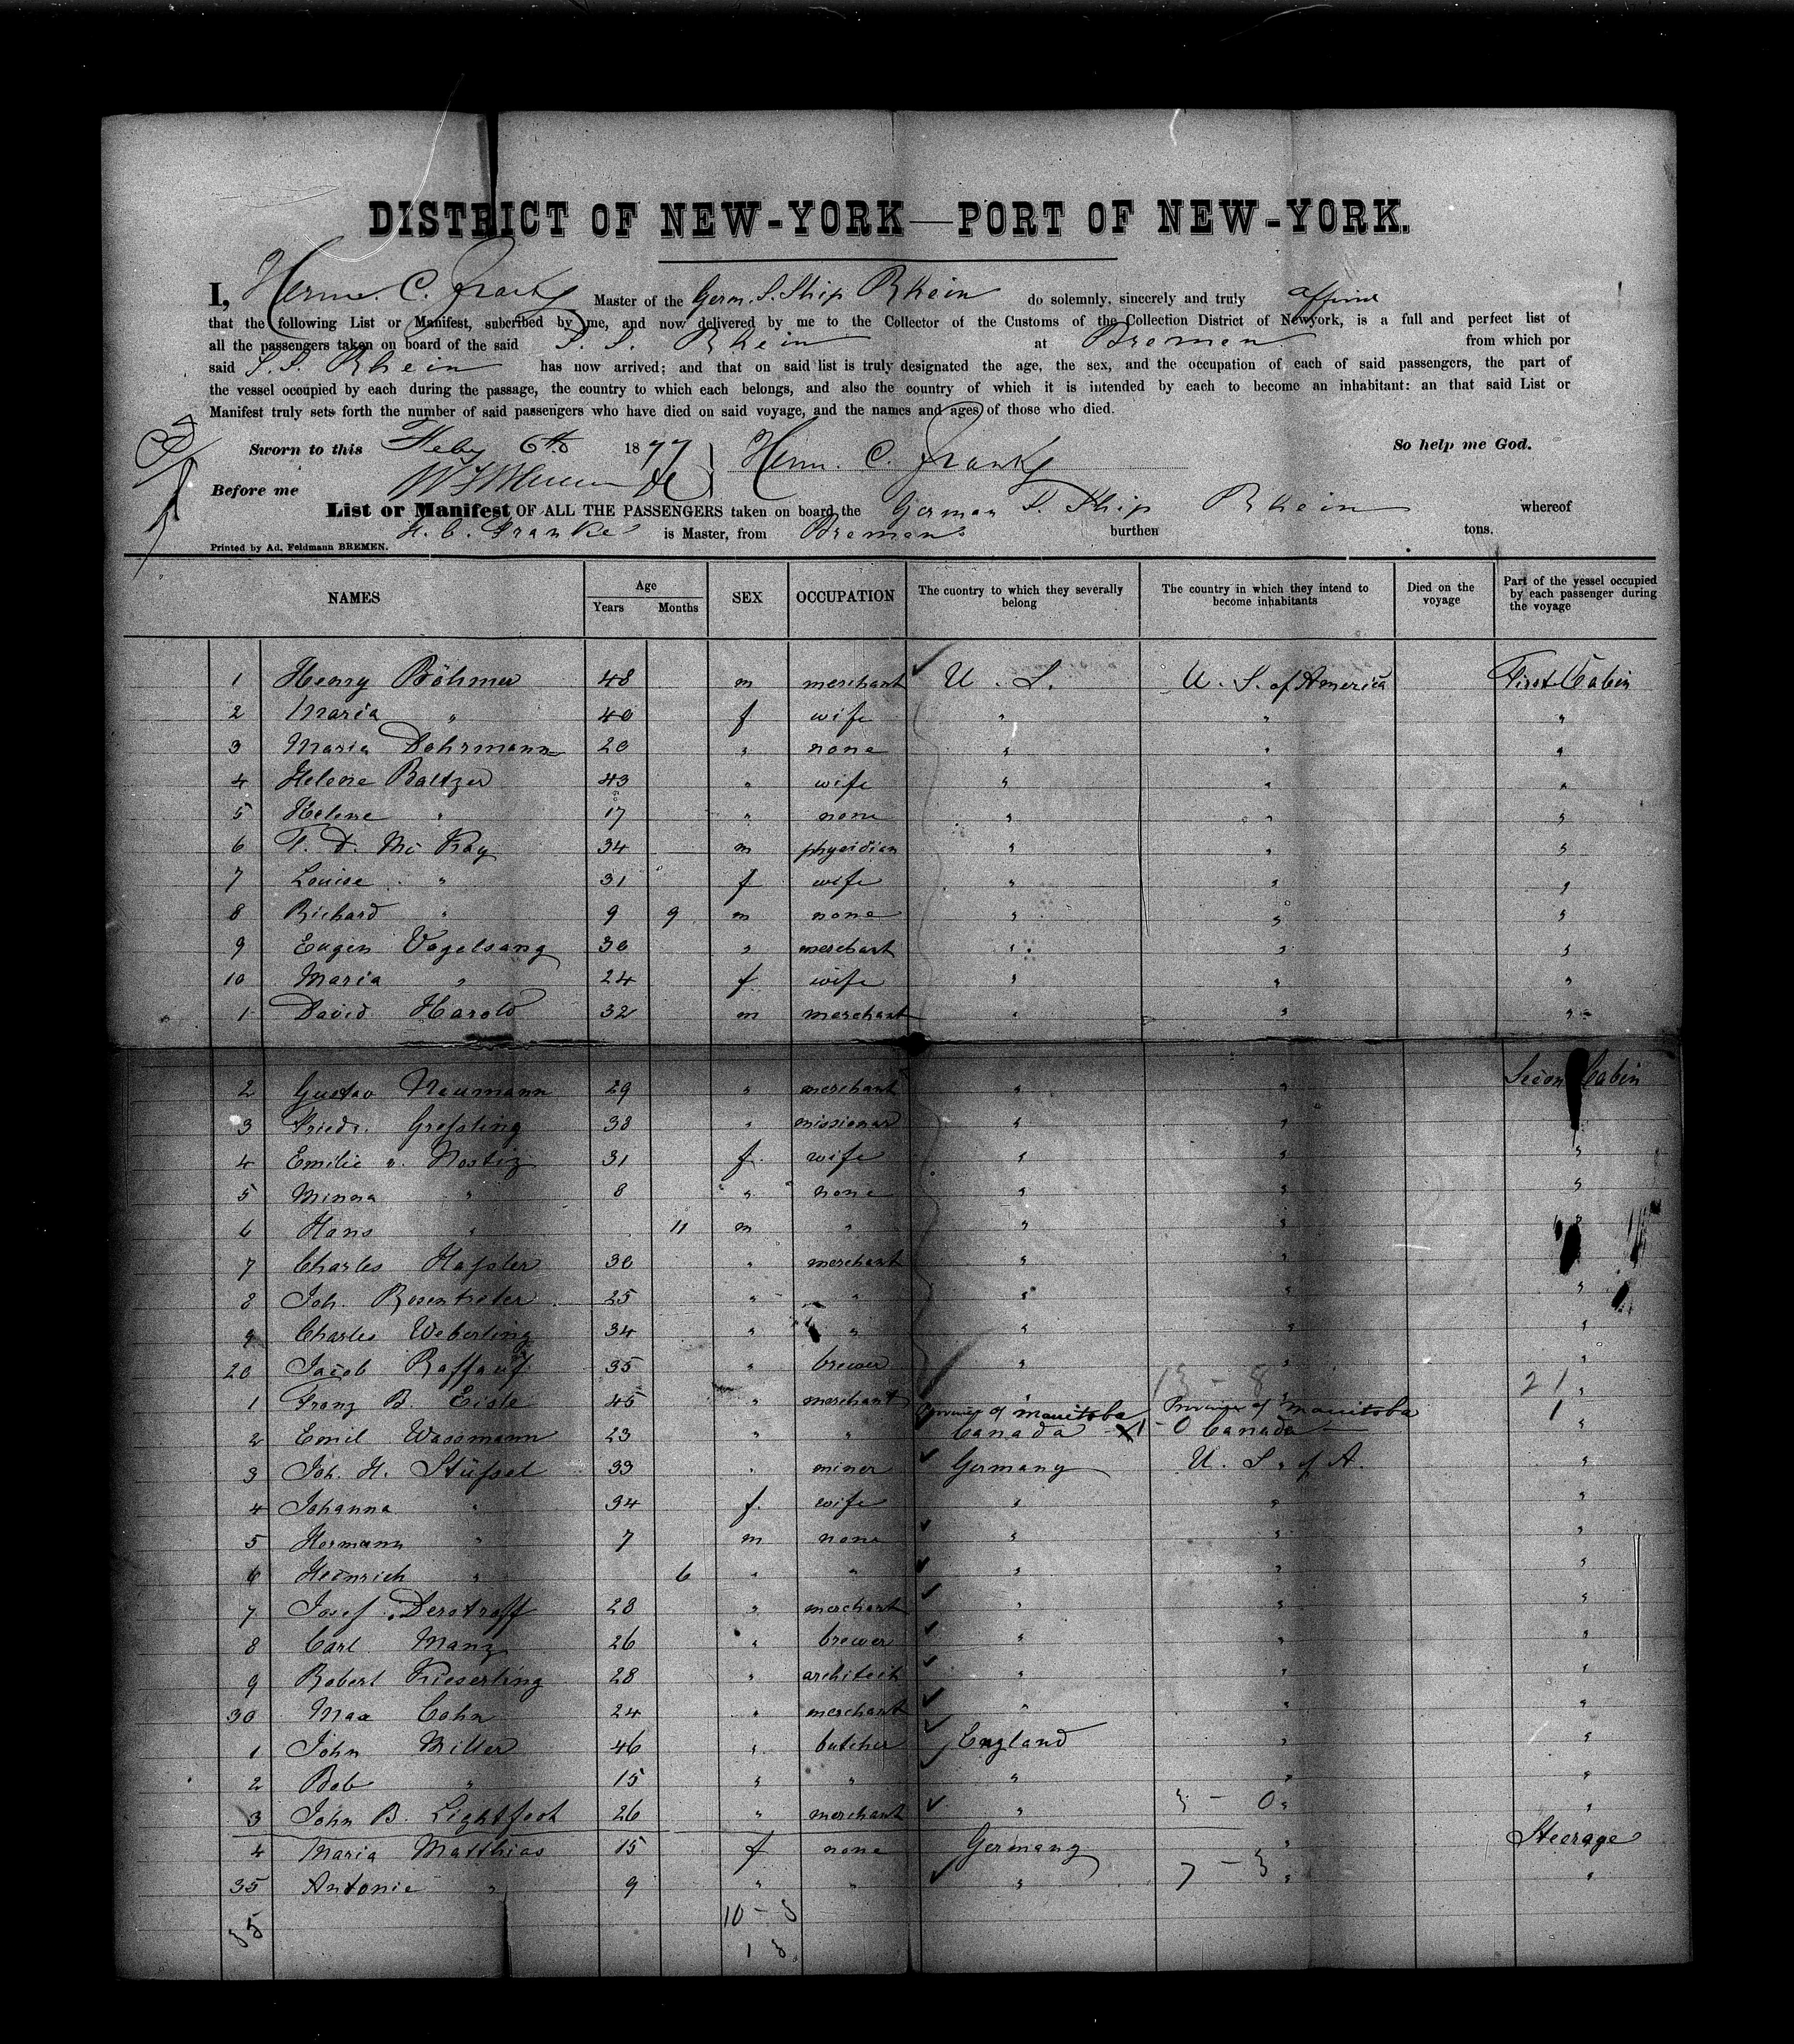 DISTRICT OF NEW-YORK—PORT OF NEW-YORK.
I, Herm. C. Franke Master of the Germ. S. Ship Rhein do solemnly, sincerely and truly affirm
that the following List or Manifest, subcribed by me, and now delivered by me to the Collector of the Customs of the Collection District of Newyork, is a full and perfect list of
all the passengers taken on board of the said S. S. Rhein at Bremen from which por
said S. S. Rhein has now arrived; and that on said list is truly designated the age, the sex, and the occupation of each of said passengers, the part of
the vessel occupied by each during the passage, the country to which each belongs, and also the country of which it is intended by each to become an inhabitant: an that said List or
Manifest truly sets forth the number of said passengers who have died on said voyage, and the names and ages of those who died.
Sworn to this Feby 6th 1877 Herm. C. Franke So help me God.
Before me
List or Manifest OF ALL THE PASSENGERS taken on board the German S. Ship Rhein whereof
H. C. Franke is Master, from Bremen burthen tons.
Printed by Ad. Feldmann BREMEN.
NAMES Age Years Months SEX OCCUPATION The cuontry to which they severally belong The country in which they intend to become inhabitants Died on the voyage Part of the vessel occupied by each passenger during the voyage
1 Henry Böhmer 48 m merchant U. S. U. S. of America First Cabin
2 Maria " 40 f wife " " "
3 Maria Dohrmann 20 " none " " "
4 Helene Baltzer 43 " wife " " "
5 Helene " 17 " none " " "
6 F. D. Mc Kay 34 m physidian " " "
7 Louise " 31 f wife " " "
8 Richard " 9 9 m none " " "
9 Eugen Vogelsang 30 " merchant " " "
10 Maria " 24 f wife " " "
1 David Harold 32 m merchant " " "
2 Gustav Neumann 29 " merchant " " Second Cabin
3 Friedr. Greßling 38 " missionar " "
4 Emilie v. Nostiz 31 f. wife " " "
5 Minna " 8 " none " " "
6 Hans " 11 m " " " "
7 Charles Haßler 30 " merchant " "
8 Joh. Rosentreter 25 " " " " "
9 Charles Weberling 34 " " " " "
20 Jacob Raffauf 35 " brewer " " "
1 Franz B. Eisle 45 " merchant " 13 - 8 " 21 "
Province of Manitoba Province of Manitoba 1
2 Emil Wassmann 23 " " Canada X1 - 0 Canada "
3 Joh. H. Stüßel 33 " miner Germany U. S. of A. "
4 Johanna " 34 f. wife " " "
5 Hermann " 7 m none " " "
6 Heinrich " 6 " " " " "
7 Josef Derotroff 28 " merchant " " "
8 Carl Manz 26 " brewer " " "
9 Robert Kieserling 28 " architect " " "
30 Max Cohn 24 " merchant " " "
1 John Miller 46 " butcher England " "
2 Bob " 15 " " " " "
3 John B. Lightfoot 26 " merchant " 3 - 0 " "
4 Maria Matthias 15 f none Germany " Steerage
35 Antonie " 9 " " " 7 - 3 " "
10 - 8